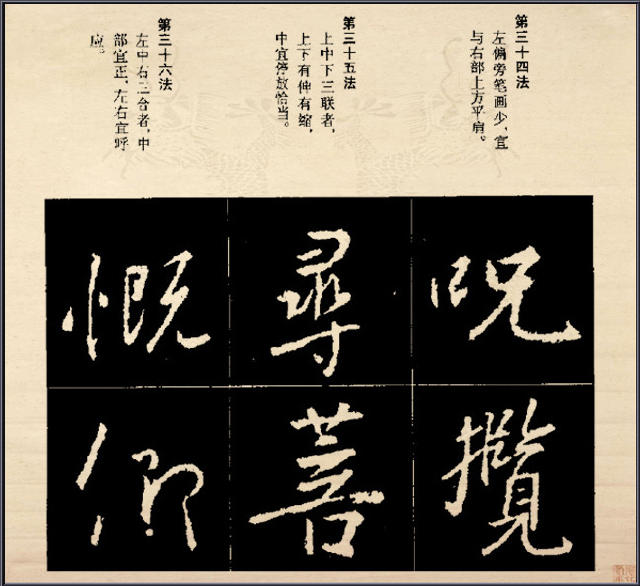 第三十四法
左偏旁笔画少，宜
与右部上方平肩。
第三十五法
上中下三联者，
上下有伸有缩，
中宜停放恰当。
第三十六法
左中右三合者，中
部宜正，左右宜呼
应。
呪
攬
尋
菩
慨
仰